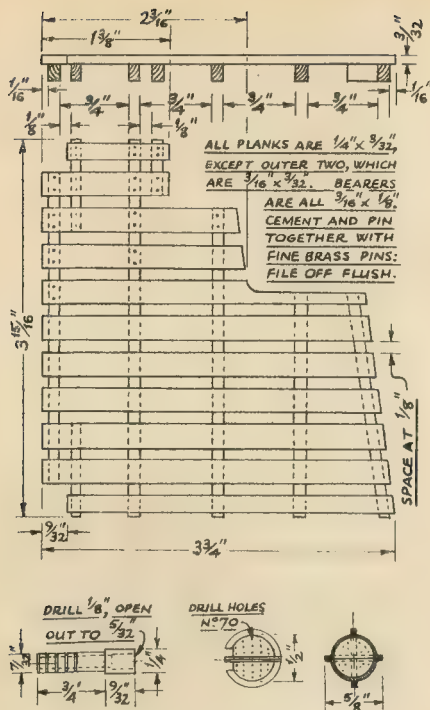 2 3/16"
1 3/8"
3/32"
1/16"
3/4"
3/4"
3/4"
3/4"
1/16"
1/8"
1/8"
ALL PLANKS ARE 1/4" x 3/32",
EXCEPT OUTER TWO, WHICH
ARE 3/16" x 3/32". BEARERS
ARE ALL 3/16" x 1/8".
CEMENT AND PIN
TOGETHER WITH
FINE BRASS PINS:
FILE OFF FLUSH.
3 15/16"
SPACE AT 1/8"
9/32"
3 3/4"
DRILL 1/8", OPEN
OUT TO 5/32"
7/32"
1/4"
3/4"
9/32"
DRILL HOLES
No 70
1/2"
5/8"